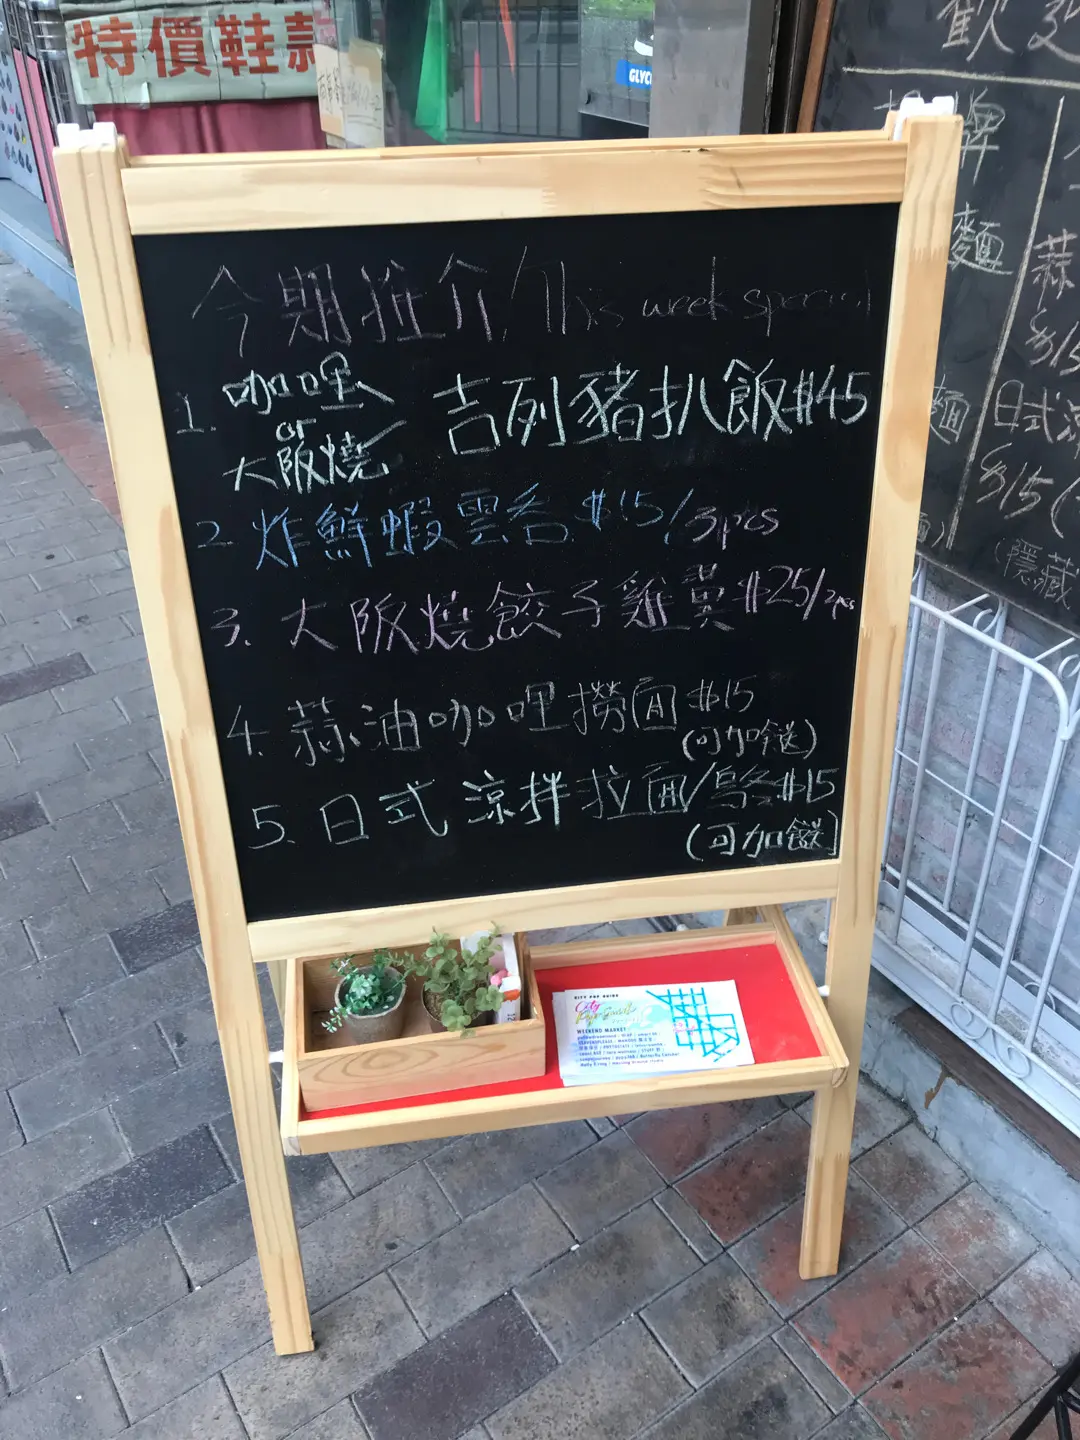 特價鞋款
GLYCO
今期推介/This week special
1. 咖哩 or 大阪燒 吉列豬扒飯$45
2. 炸鮮蝦雲吞 $15/3pcs
3. 大阪燒餃子雞翼$25/2pcs
4. 蒜油咖哩撈面$15
(可加餸)
5. 日式涼拌拉面/烏冬$15
(可加餸)
歡迎
牌
麵
蒜
$15
麵
日式涼
$15(
(隱藏
CITY POP GUIDE
City Pop Guide
WEEKEND MARKET